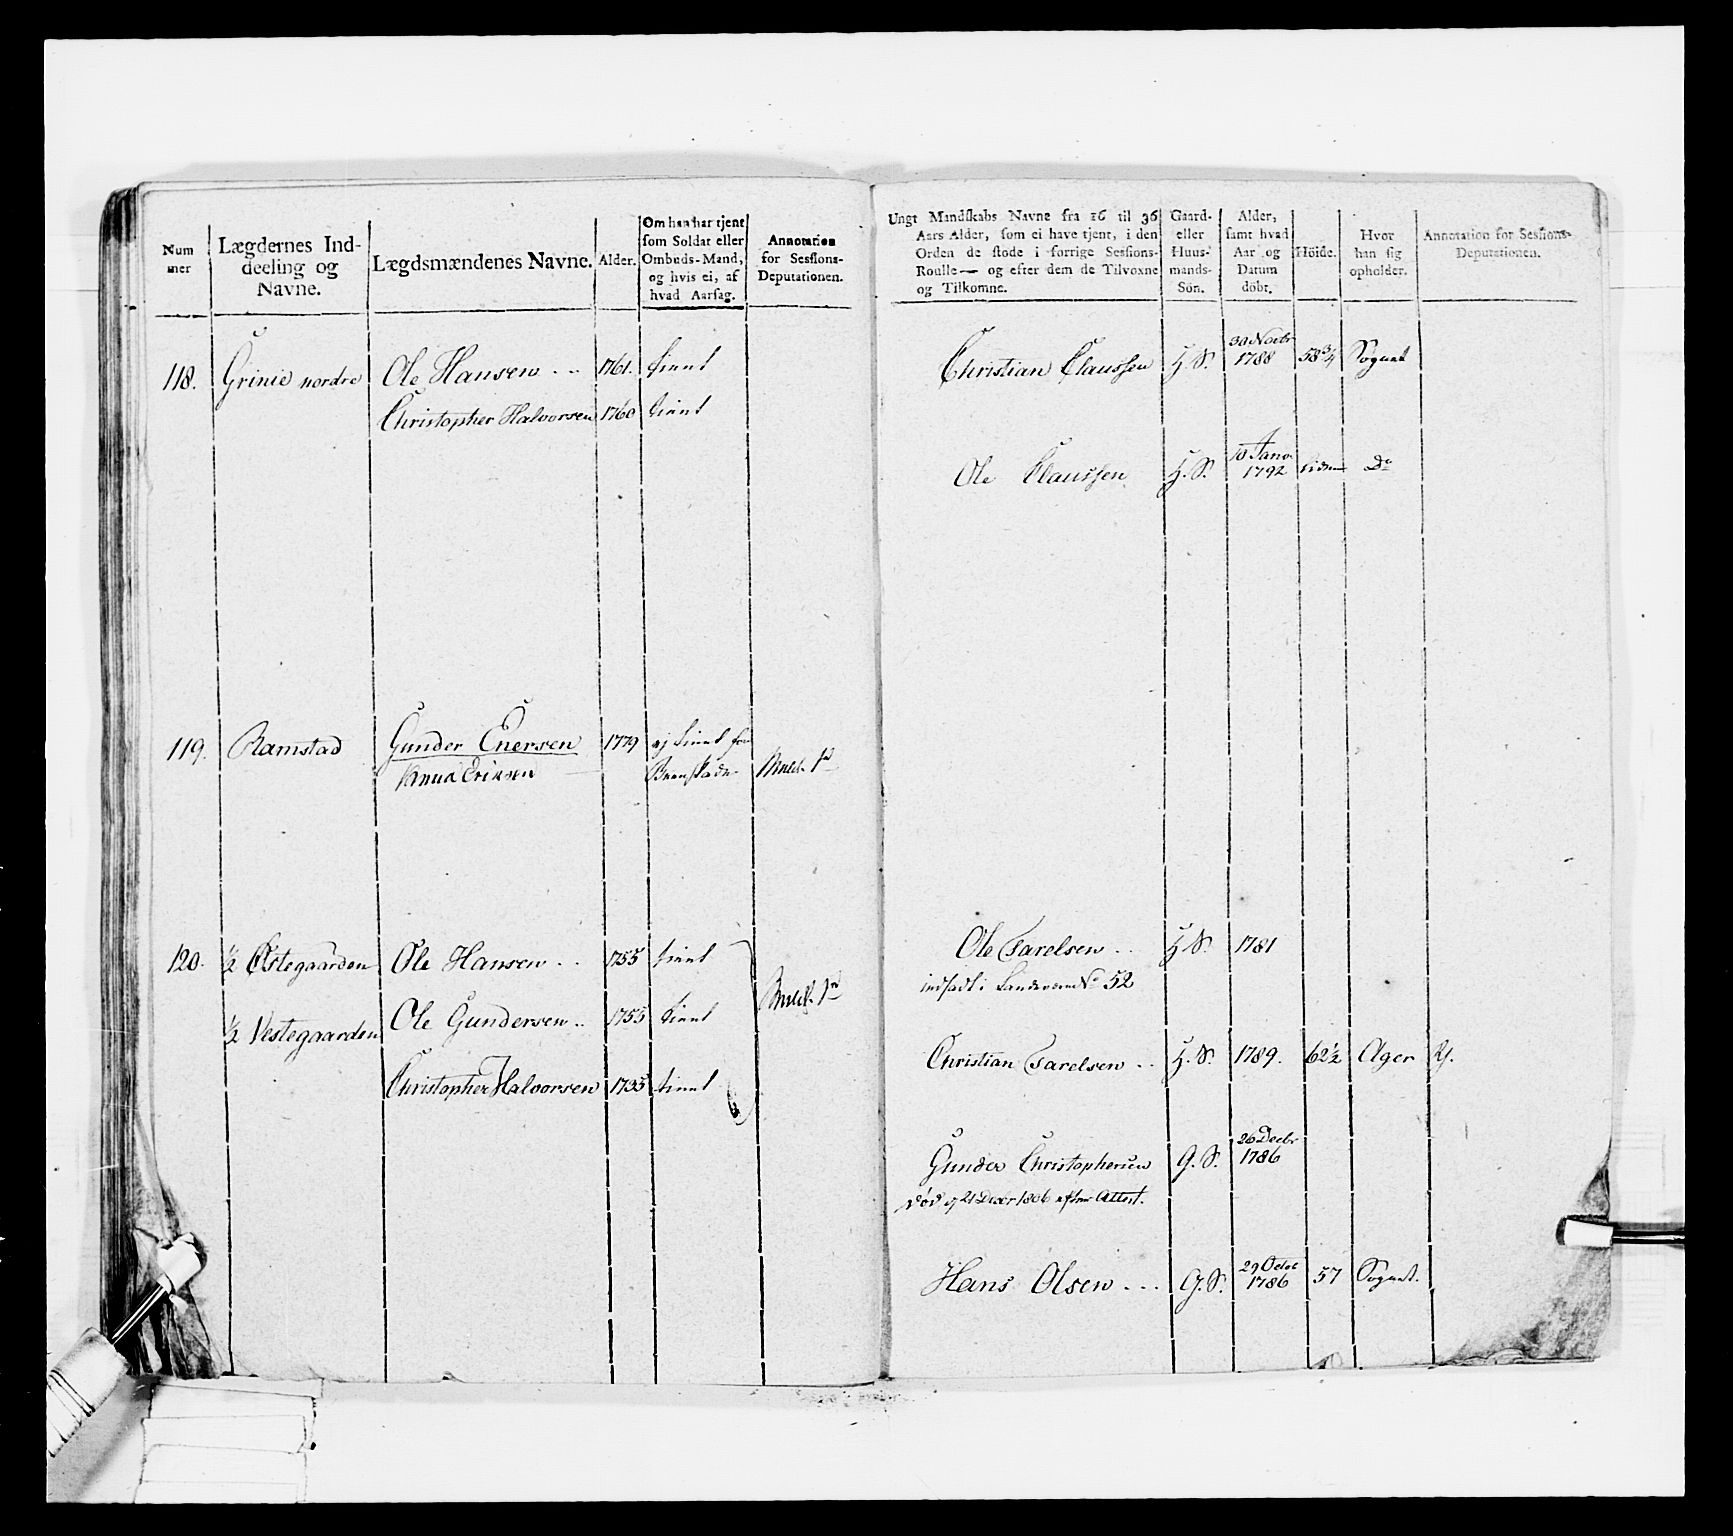 Num
mer
Lægdernes Ind-
deeling og
Navne.
Lægdsmændenes Navne.
Alder.
Om han har tjent
som Soldat eller
Ombuds-Mand,
og hvis ei, af
hvad Aarsag.
Annotation
for Sessions-
Deputationen.
Ungt Mandskabs Navne fra 16 til 36
Aars Alder, som ei have tjent, i den
Orden de stode i forrige Sessions-
Roulle — og efter dem de Tilvoxne
og Tilkomne.
Gaard-
eller
Huus-
mands-
Sön.
Alder,
samt hvad
Aar og
Datum
döbt.
Höide.
Hvor
han sig
opholder.
Annotation for Sessions-
Deputationen.
118. Grinie nordre Ole Hansen .. 1761. tient
Christopher Halvorsen 1760 tient
Christian Claussen H.S. 30 Novbr 1788 58 3/4 Sognet
Ole Claussen H.S. 10 Janv. 1792 liden Do
119. Ramstad Gunder Enersen 1779 ej tient for
Knud Eriksen
120. ½ Østegaarden Ole Hansen .. 1755 tient
½ Vestegaarden Ole Gundersen .. 1755 tient
Christopher Halvorsen 1735 tient
Ole Tarelsen .. H.S. 1781
indsadt i Landeværn No 52
Christian Tarelsen .. H.S. 1789. 62½ Ager
Gunder Christophersen G.S. 26 Decbr 1786
død 21 Decbr 1806 efter Attest.
Hans Olsen ... G.S. 29 Octor 1786 57 Sognet.